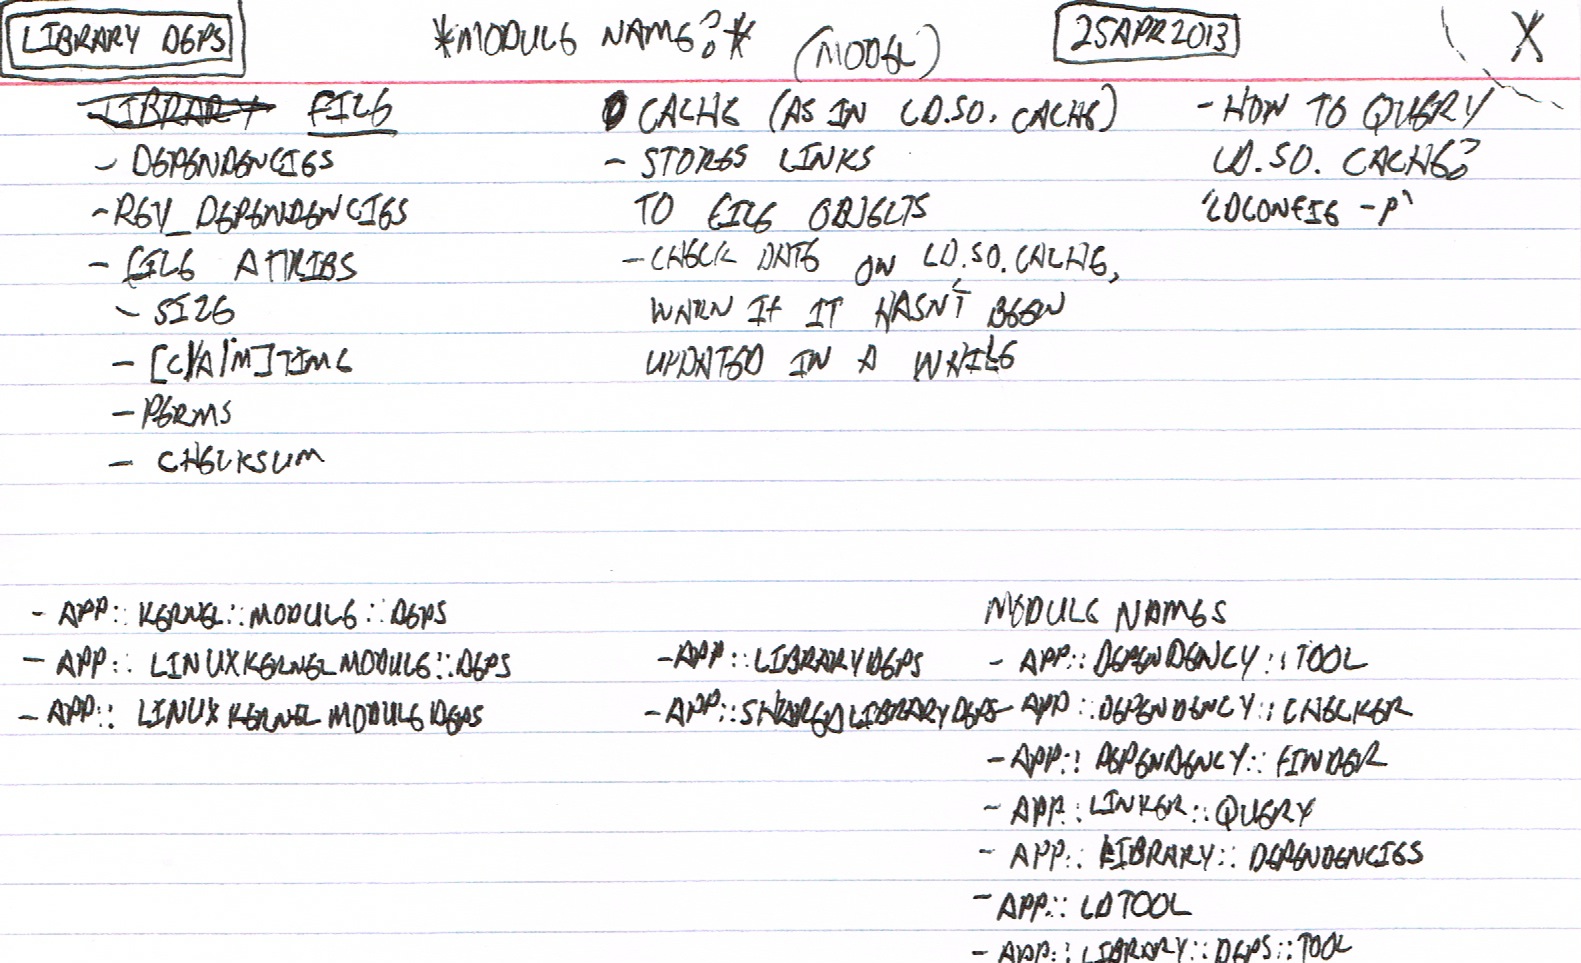 LIBRARY DEPS
*MODULE NAME?*
(MODEL)
25APR2013
X
LIBRARY FILE
- DEPENDENCIES
- REV_DEPENDENCIES
- FILE ATTRIBS
- SIZE
- [C/A/M]TIME
- PERMS
- CHECKSUM
CACHE (AS IN LD.SO.CACHE)
- STORES LINKS
TO FILE OBJECTS
- CHECK DATE ON LD.SO.CACHE,
WARN IF IT HASN'T BEEN
UPDATED IN A WHILE
- HOW TO QUERY
LD.SO.CACHE?
'LDCONFIG -P'
- APP::KERNEL::MODULE::DEPS
- APP::LINUXKERNELMODULE::DEPS
- APP::LINUXKERNELMODULEDEPS
- APP::LIBRARYDEPS
- APP::SHAREDLIBRARYDEPS
MODULE NAMES
- APP::DEPENDENCY::TOOL
- APP::DEPENDENCY::CHECKER
- APP::DEPENDENCY::FINDER
- APP::LINKER::QUERY
- APP::LIBRARY::DEPENDENCIES
- APP::LDTOOL
- APP::LIBRARY::DEPS::TOOL